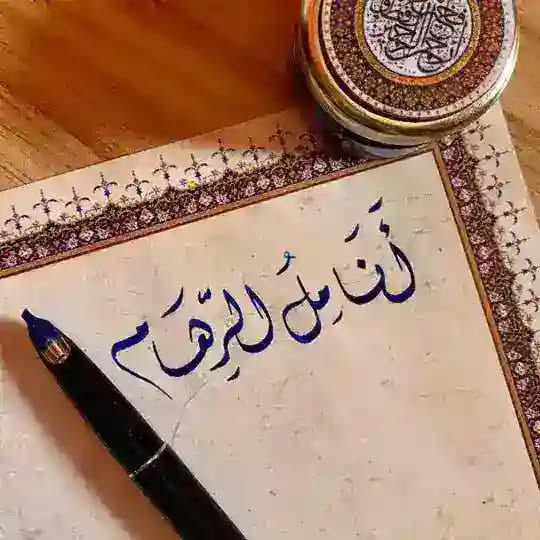 أَنَامِلُ الرِّهَام